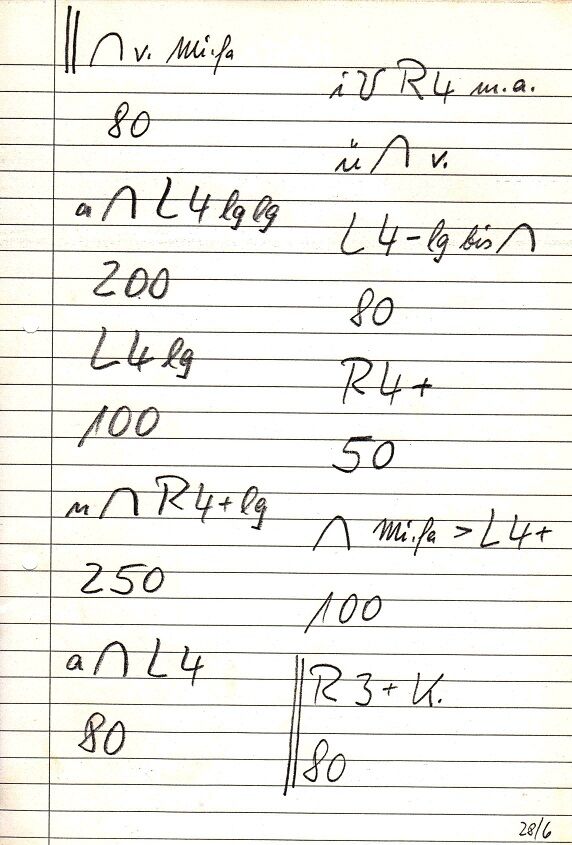 ∩ v. Mi.fa
80
a ∩ L4 lg lg
200
L4 lg
100
n ∩ R4+ lg
250
a ∩ L4
80
R4 m.a.
ü ∩ v.
L4-lg bis ∩
80
R4+
50
∩ Mi.fa > L4+
100
R3+ K.
80
28/6